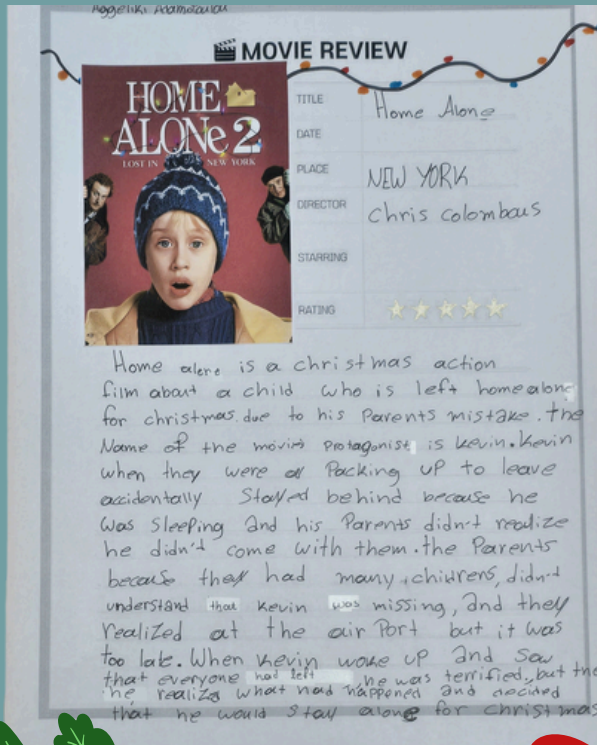 Aggeliki Adamopoulou
MOVIE REVIEW
HOME
ALONe 2
LOST IN NEW YORK
TITLE Home Alone
DATE
PLACE NEW YORK
DIRECTOR Chris Colombous
STARRING
RATING
Home alone is a christmas action
film about a child who is left home alone
for christmas due to his Parents mistake. the
Name of the movies Protagonist is Kevin. Kevin
when they were Packing up to leave
accidentally Stayed behind because he
was Sleeping and his Parents didn't realize
he didn't come with them. the Parents
because they had many childrens, didn't
understand that Kevin was missing, and they
realized at the air Port but it was
too late. When Kevin woke up and Saw
that everyone had left he was terrified, but the
he realize what had happened and decided
that he would Stay alone for christmas